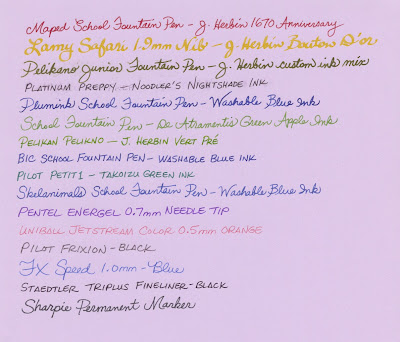 Maped School Fountain Pen - J. Herbin 1670 Anniversary
Lamy Safari 1.9mm Nib - J. Herbin Bouton D'or
Pelikano Junior Fountain Pen - J. Herbin custom ink mix
Platinum Preppy - Noodler's Nightshade Ink
Plumink School Fountain Pen - Washable Blue Ink
School Fountain Pen - De Atramentis Green Apple Ink
Pelikan Pelikno - J. Herbin Vert Pré
Bic School Fountain Pen - Washable Blue Ink
Pilot Petit1 - Takoizu Green Ink
Skelanimals School Fountain Pen - Washable Blue Ink
Pentel Energel 0.7mm Needle Tip
Uniball Jetstream Color 0.5mm Orange
Pilot Frixion - Black
FX Speed 1.0mm - Blue
Staedtler Triplus Fineliner - Black
Sharpie Permanent Marker